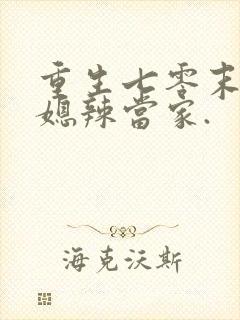 重生七零末
媳辣當家.
海克沃斯